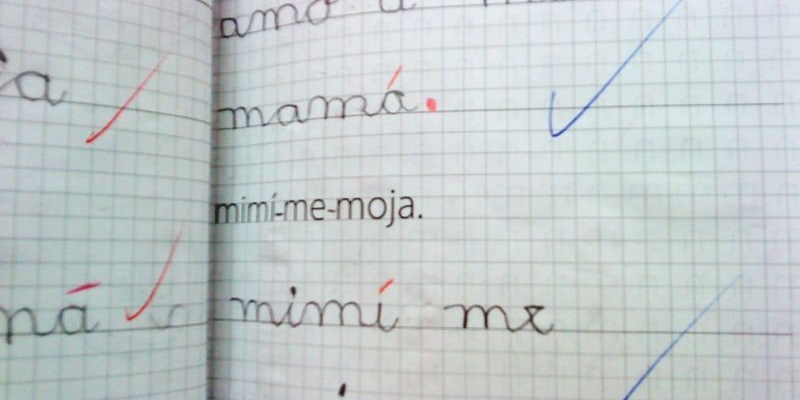 amo a
mamá.
mimí-me-moja.
mimí me